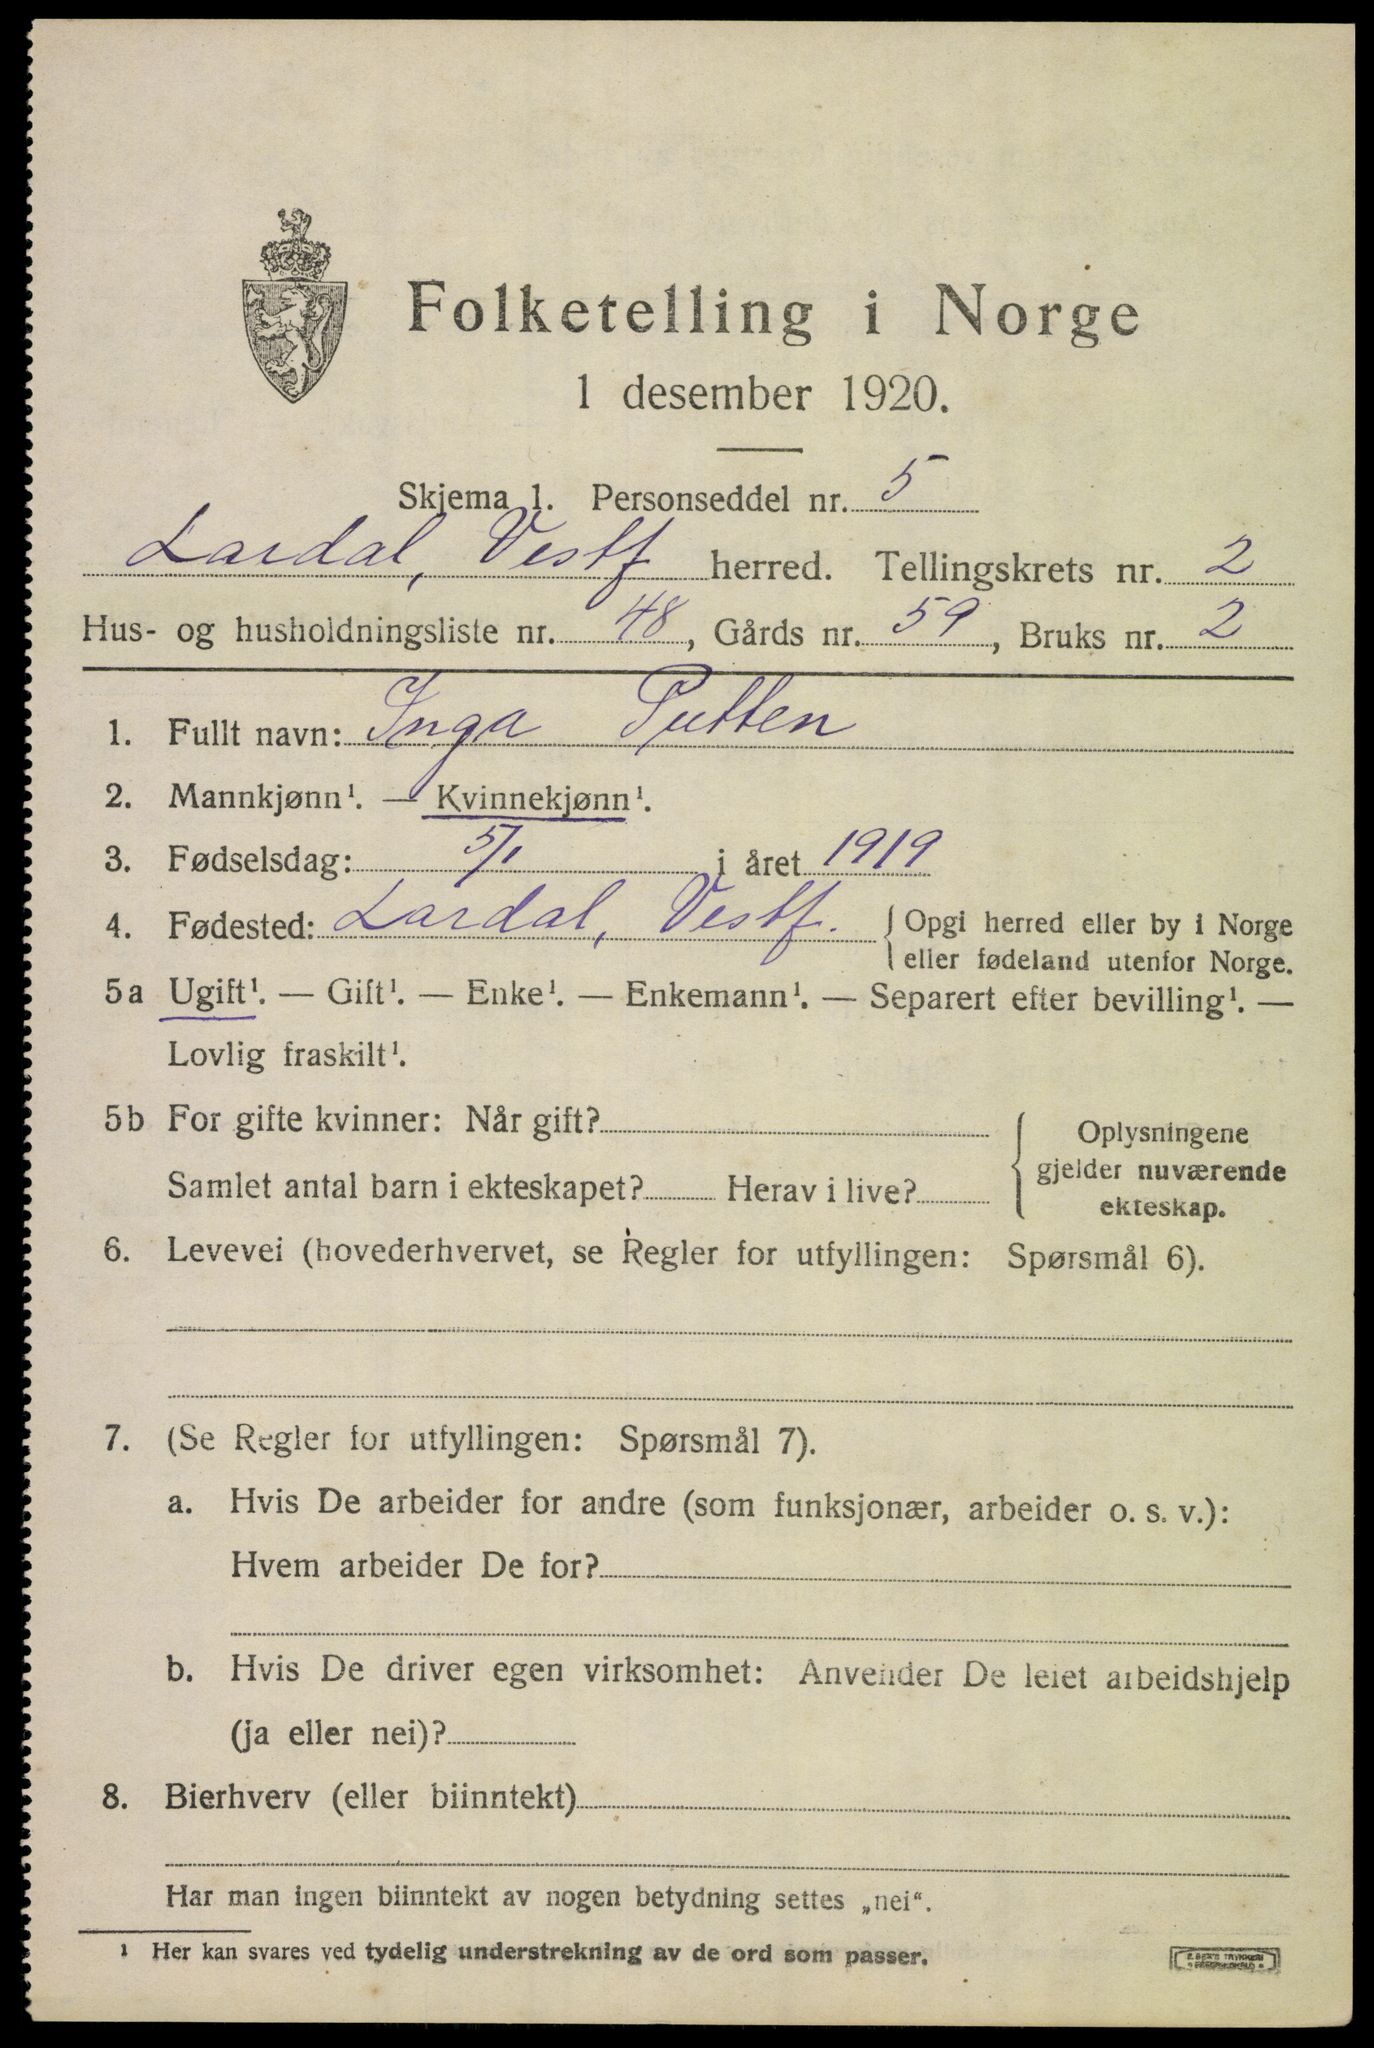 Folketelling i Norge
1 desember 1920.
Skjema 1. Personseddel nr. 5
Lardal, Vestf herred. Tellingskrets nr. 2
Hus- og husholdningsliste nr. 48, Gårds nr. 59, Bruks nr. 2
1. Fullt navn: Inga Putten
2. Mannkjønn¹. — Kvinnekjønn¹.
3. Fødselsdag: 5/1 i året 1919
4. Fødested: Lardal, Vestf. { Opgi herred eller by i Norge
eller fødeland utenfor Norge.
5a Ugift¹. — Gift¹. — Enke¹. — Enkemann¹. — Separert efter bevilling¹. —
Lovlig fraskilt¹.
5b For gifte kvinner: Når gift?
Samlet antal barn i ekteskapet? Herav i live?
{ Oplysningene
gjelder nuværende
ekteskap.
6. Levevei (hovederhvervet, se Regler for utfyllingen: Spørsmål 6).
7. (Se Regler for utfyllingen: Spørsmål 7).
a. Hvis De arbeider for andre (som funksjonær, arbeider o. s. v.):
Hvem arbeider De for?
b. Hvis De driver egen virksomhet: Anvender De leiet arbeidshjelp
(ja eller nei)?
8. Bierhverv (eller biinntekt)
Har man ingen biinntekt av nogen betydning settes „nei“.
¹ Her kan svares ved tydelig understrekning av de ord som passer.